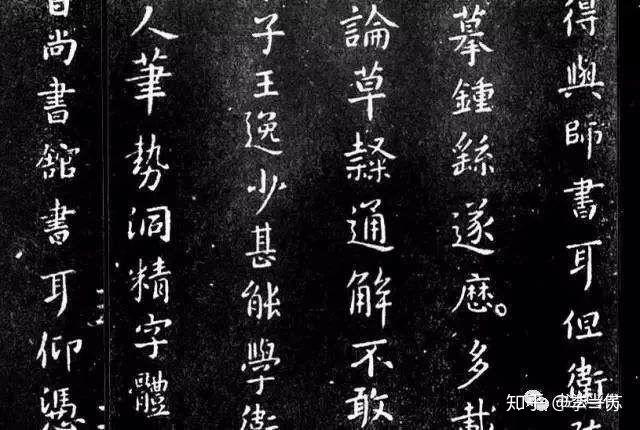 得與師書耳但衛
摹鍾繇遂歷。多載
論草隸通解不敢
子王逸少甚能學衛
人筆勢洞精字體
尚書舘書耳仰憑
知乎